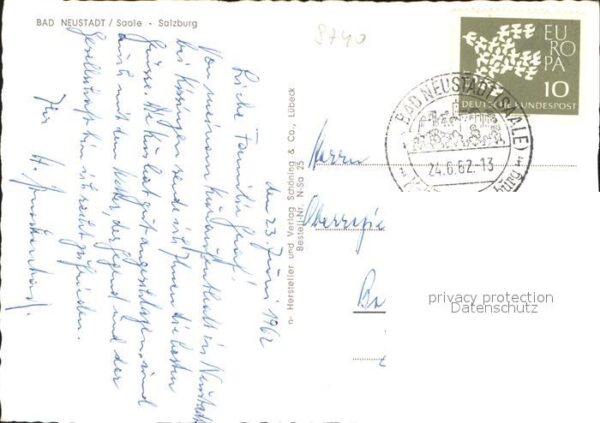 BAD NEUSTADT / Saale - Salzburg
8740
den 23. Juni 1962
Liebe Familie
Von meinem Kuraufenthalt in Neustadt
bei Kissingen sende ich Ihnen die besten
Grüsse. Die Kur hat gut angeschlagen und
auch mit dem Wetter, der Gegend und der
Gesellschaft bin ich recht zufrieden.
Ihr H.
n- Hersteller und Verlag Schöning & Co., Lübeck
Bestell-Nr. N-Sa 25
EUROPA
10
DEUTSCHE BUNDESPOST
BAD NEUSTADT (SAALE)
24.6.62.-13
Herrn
Ba
privacy protection
Datenschutz